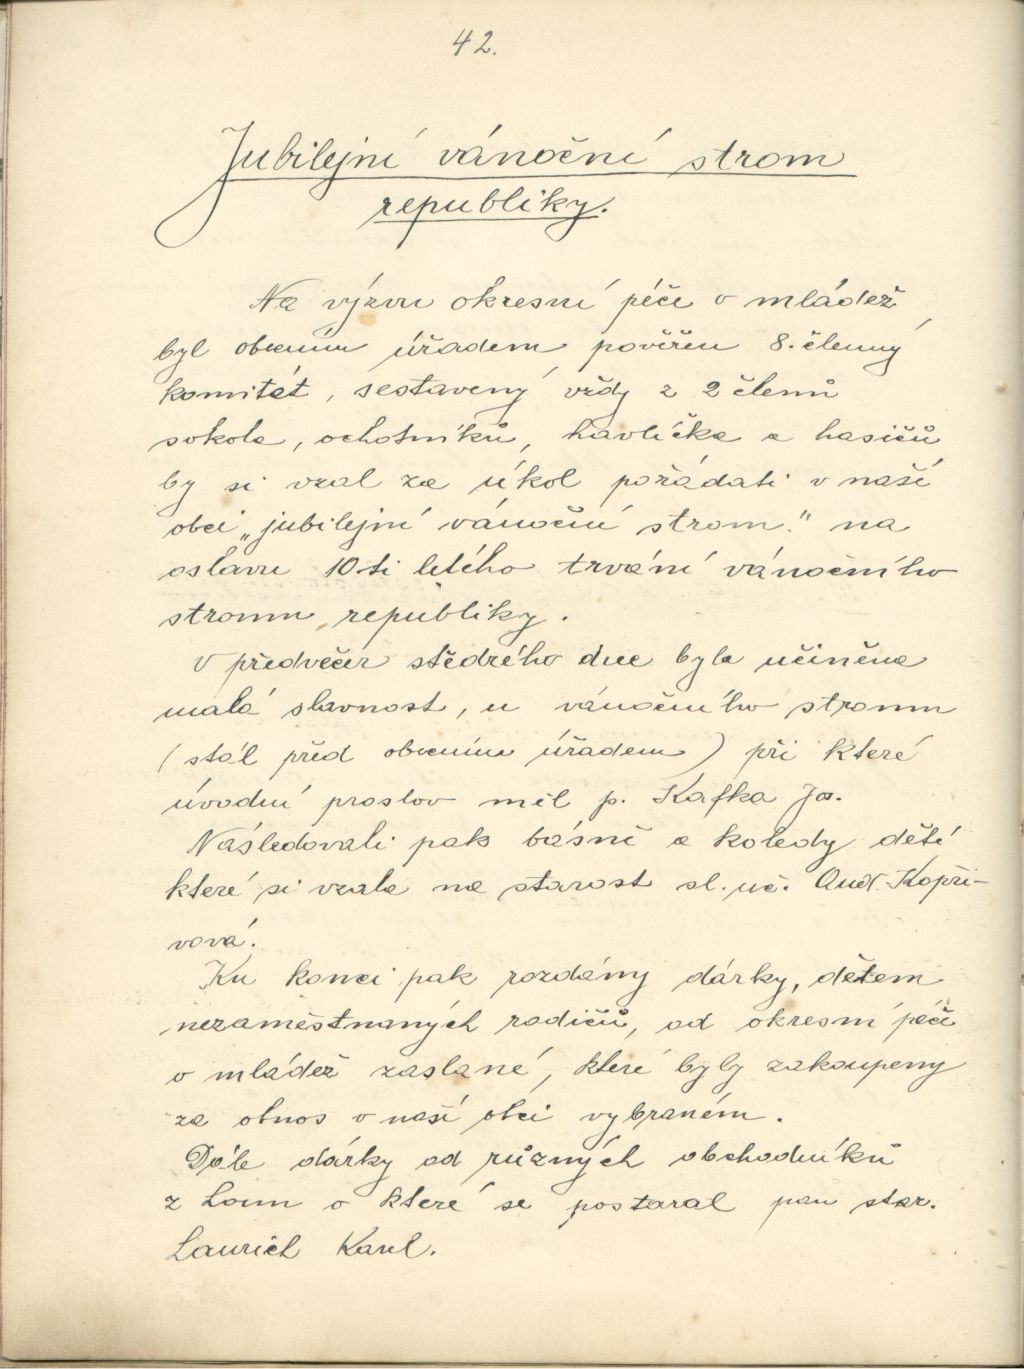 42.
Jubilejní vánoční strom
republiky.
Na výzvu okresní péče o mládež
byl obecním úřadem pověřen 8. členný
komitét, sestavený vždy z 2 členů
sokola, ochotníků, havlíčka a hasičů
by si vzal za úkol pořádati v naší
obci „jubilejní vánoční strom." na
oslavu 10 ti letého trvání vánočního
stromu republiky.
V předvečer štědrého dne byla učiněna
malá slavnost, u vánočního stromu
(stál před obecním úřadem) při které
úvodní proslov měl p. Kafka Jos.
Následovali pak básně a koledy dětí
které si vzala na starost sl. uč. And. Kopři-
vová.
Ku konci pak rozdány dárky, dětem
nezaměstnaných rodičů, od okresní péče
o mládež zaslané, které byly zakoupeny
za obnos v naší obci vybraném.
Dále dárky od různých obchodníků
z Loun o které se postaral pan star.
Laurich Karel.